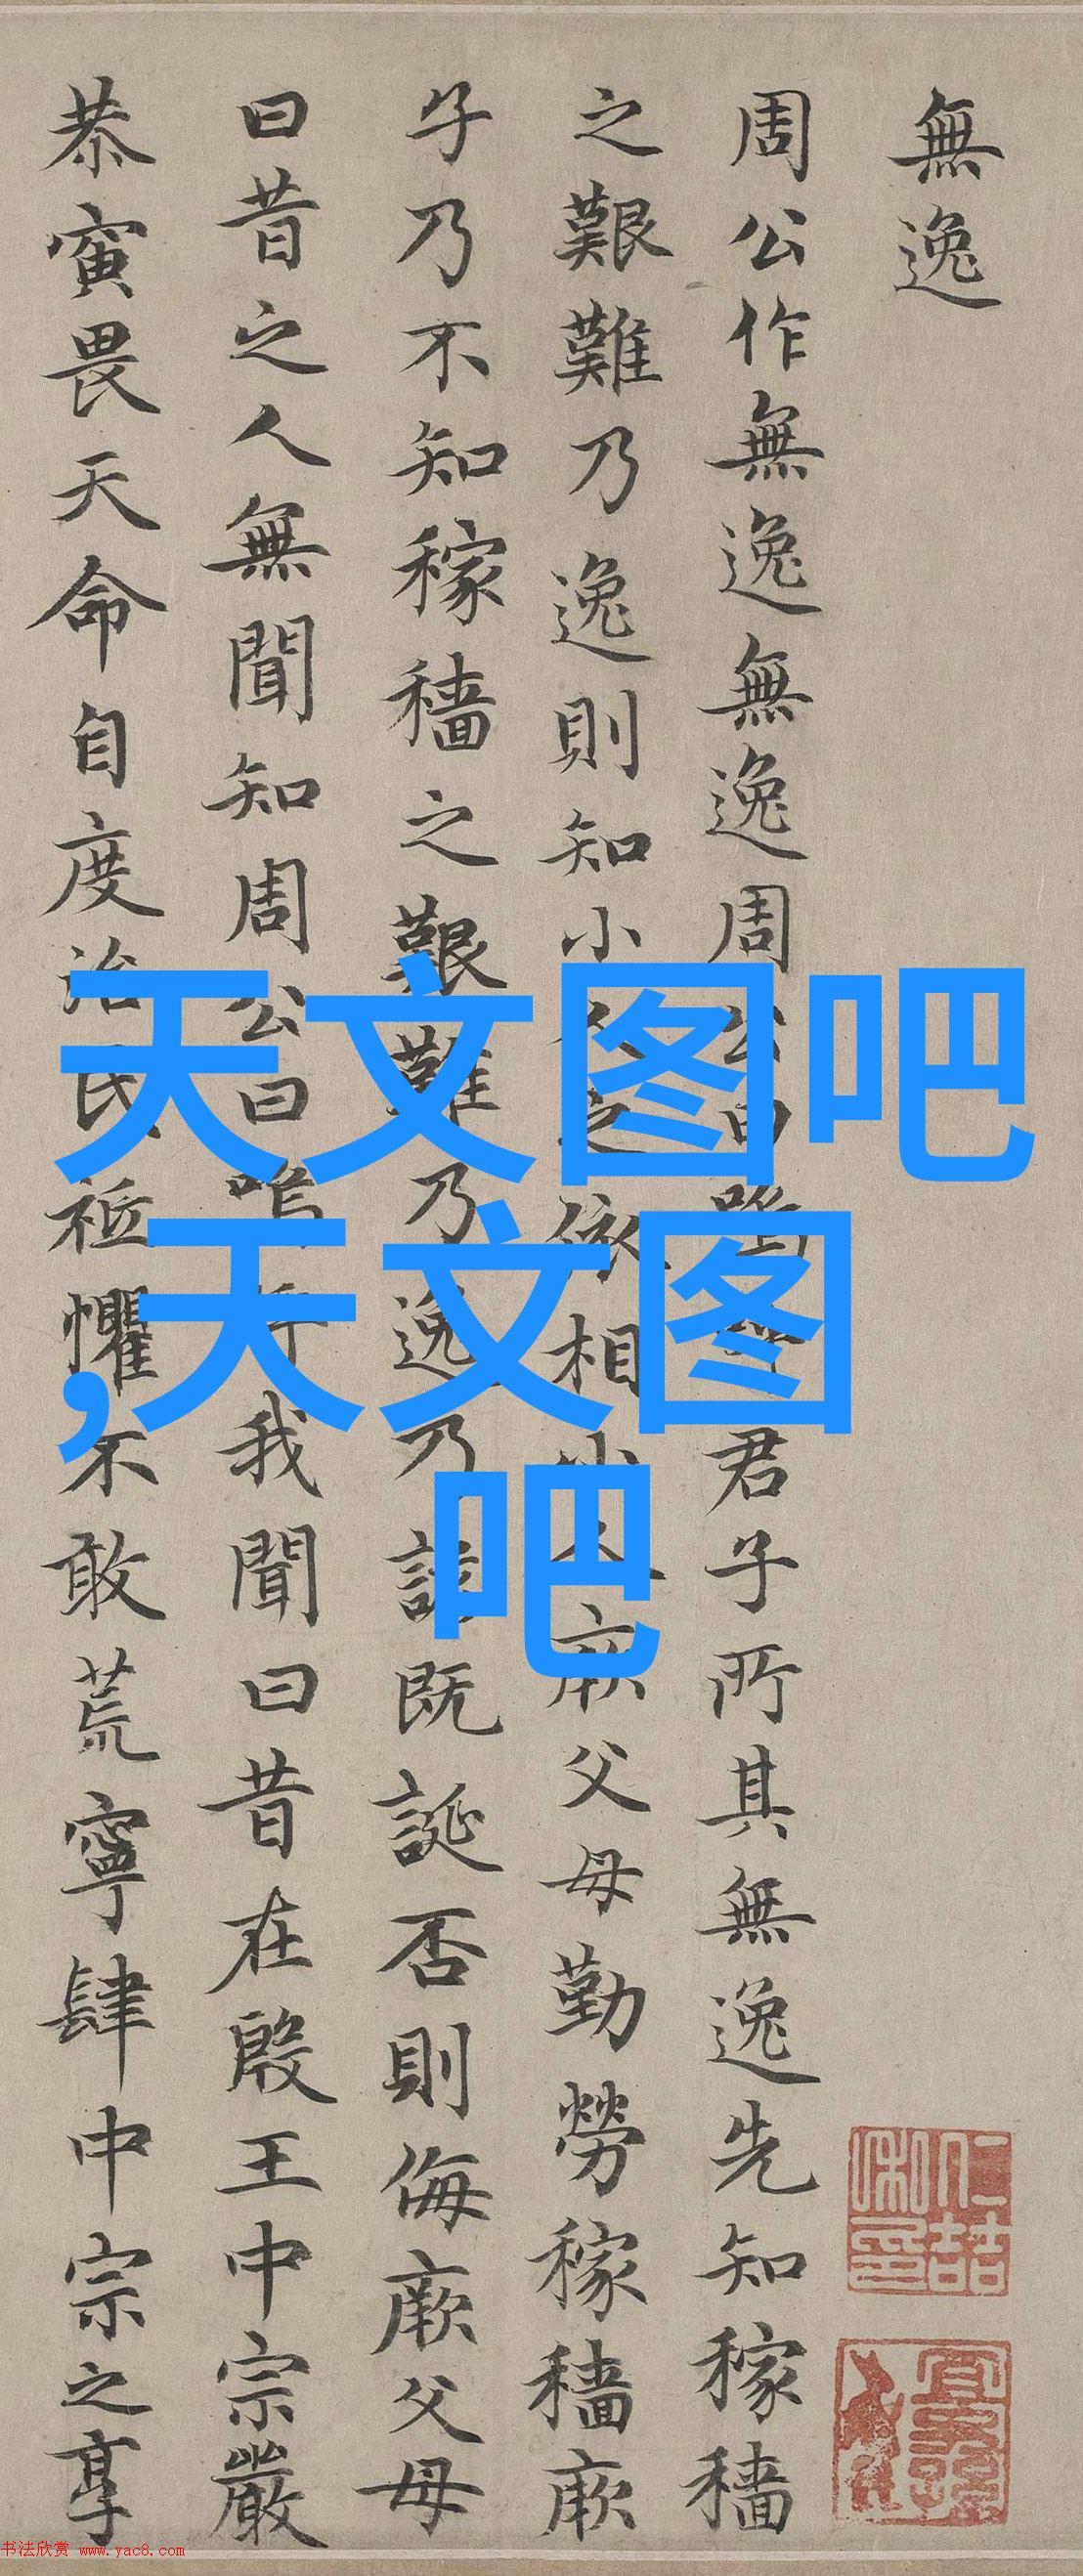 無逸
周公作無逸無逸周公曰君子所其無逸先知稼穡
之艱難乃逸則知小人之依相小人厥父母勤勞稼穡厥
子乃不知稼穡之艱難乃逸乃諺既誕否則侮厥父母
曰昔之人無聞知周公曰嗚呼我聞曰昔在殷王中宗嚴
恭寅畏天命自度治民祗懼不敢荒寧肆中宗之享
天文图吧
,天文图
吧
书法欣赏 www.yac8.com